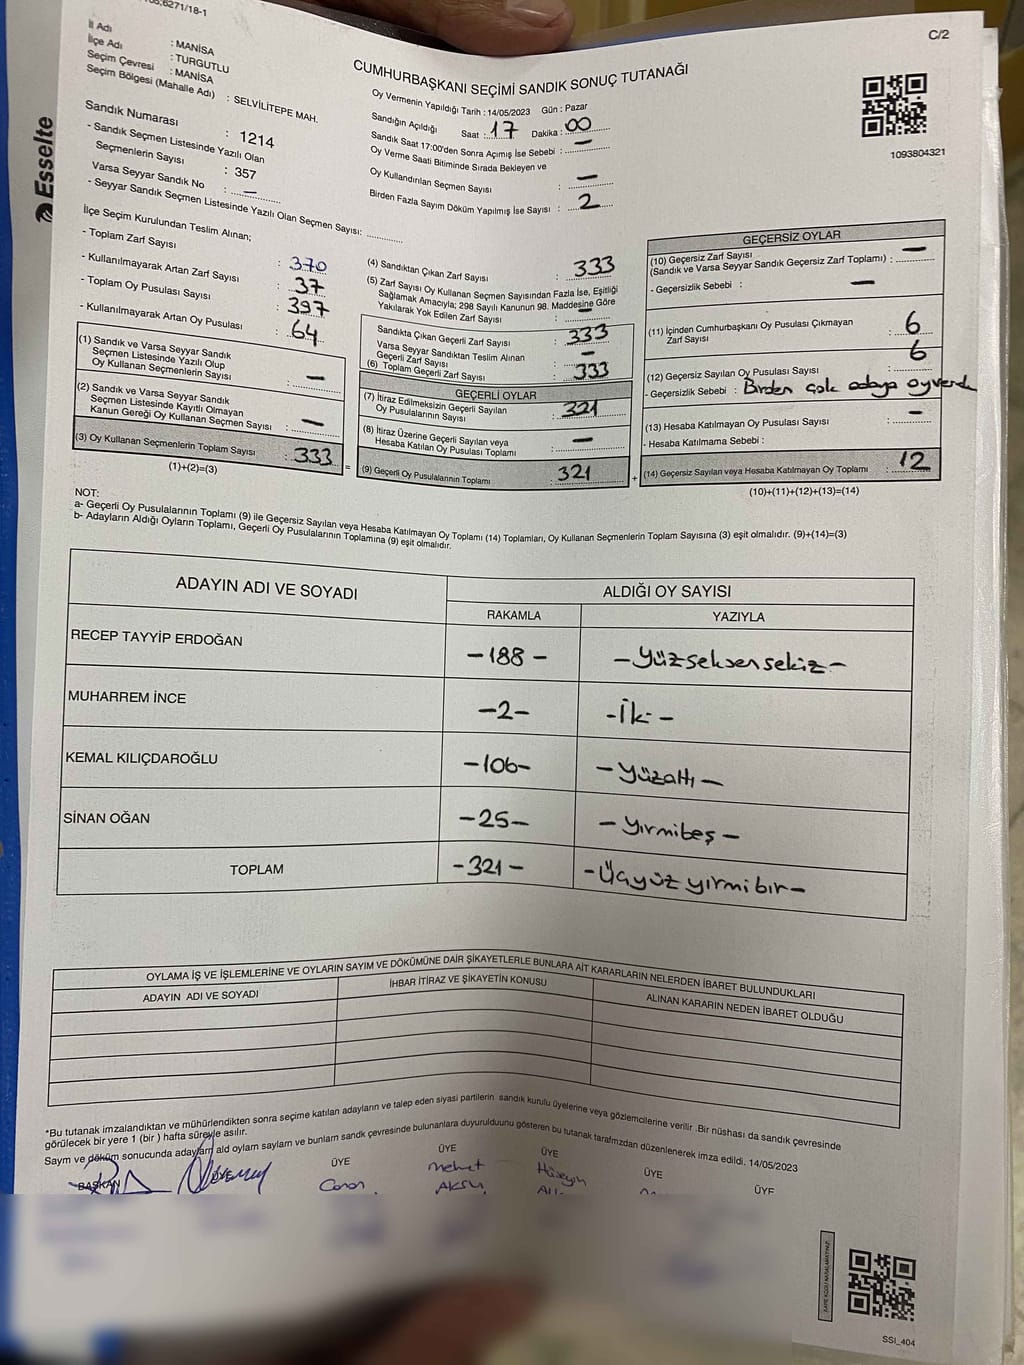 6271/18-1
C/2
İl Adı : MANİSA
İlçe Adı : TURGUTLU
Seçim Çevresi : MANİSA
Seçim Bölgesi (Mahalle Adı) : SELVİLİTEPE MAH.
Sandık Numarası : 1214
- Sandık Seçmen Listesinde Yazılı Olan
Seçmenlerin Sayısı : 357
Varsa Seyyar Sandık No : —
- Seyyar Sandık Seçmen Listesinde Yazılı Olan Seçmen Sayısı:
CUMHURBAŞKANI SEÇİMİ SANDIK SONUÇ TUTANAĞI
Oy Vermenin Yapıldığı Tarih : 14/05/2023 Gün : Pazar
Sandığın Açıldığı Saat : 17 Dakika : 00
Sandık Saat 17:00'den Sonra Açımış İse Sebebi : —
Oy Verme Saati Bitiminde Sırada Bekleyen ve
Oy Kullandırılan Seçmen Sayısı : —
Birden Fazla Sayım Döküm Yapılmış İse Sayısı : 2
1093804321
Esselte
İlçe Seçim Kurulundan Teslim Alınan;
- Toplam Zarf Sayısı : 370
- Kullanılmayarak Artan Zarf Sayısı : 37
- Toplam Oy Pusulası Sayısı : 397
- Kullanılmayarak Artan Oy Pusulası : 64
(1) Sandık ve Varsa Seyyar Sandık
Seçmen Listesinde Yazılı Olup
Oy Kullanan Seçmenlerin Sayısı : —
(2) Sandık ve Varsa Seyyar Sandık
Seçmen Listesinde Kayıtlı Olmayan
Kanun Gereği Oy Kullanan Seçmen Sayısı : —
(3) Oy Kullanan Seçmenlerin Toplam Sayısı : 333
(1)+(2)=(3)
=
(4) Sandıktan Çıkan Zarf Sayısı : 333
(5) Zarf Sayısı Oy Kullanan Seçmen Sayısından Fazla İse, Eşitliği
Sağlamak Amacıyla; 298 Sayılı Kanunun 98. Maddesine Göre
Yakılarak Yok Edilen Zarf Sayısı : —
Sandıkta Çıkan Geçerli Zarf Sayısı : 333
Varsa Seyyar Sandıktan Teslim Alınan
Geçerli Zarf Sayısı : —
(6) Toplam Geçerli Zarf Sayısı : 333
GEÇERLİ OYLAR
(7) İtiraz Edilmeksizin Geçerli Sayılan
Oy Pusulalarının Sayısı : 321
(8) İtiraz Üzerine Geçerli Sayılan veya
Hesaba Katılan Oy Pusulası Toplamı : —
(9) Geçerli Oy Pusulalarının Toplamı : 321
+
GEÇERSİZ OYLAR
(10) Geçersiz Zarf Sayısı
(Sandık ve Varsa Seyyar Sandık Geçersiz Zarf Toplamı) : —
- Geçersizlik Sebebi : —
(11) İçinden Cumhurbaşkanı Oy Pusulası Çıkmayan
Zarf Sayısı : 6
(12) Geçersiz Sayılan Oy Pusulası Sayısı : 6
- Geçersizlik Sebebi : Birden çok adaya oy verdi
(13) Hesaba Katılmayan Oy Pusulası Sayısı : -
- Hesaba Katılmama Sebebi :
(14) Geçersiz Sayılan veya Hesaba Katılmayan Oy Toplamı : 12
(10)+(11)+(12)+(13)=(14)
NOT:
a- Geçerli Oy Pusulalarının Toplamı (9) ile Geçersiz Sayılan veya Hesaba Katılmayan Oy Toplamı (14) Toplamları, Oy Kullanan Seçmenlerin Toplam Sayısına (3) eşit olmalıdır. (9)+(14)=(3)
b- Adayların Aldığı Oyların Toplamı, Geçerli Oy Pusulalarının Toplamına (9) eşit olmalıdır.
ADAYIN ADI VE SOYADI ALDIĞI OY SAYISI
RAKAMLA YAZIYLA
RECEP TAYYİP ERDOĞAN -188- -Yüzseksensekiz-
MUHARREM İNCE -2- -İki-
KEMAL KILIÇDAROĞLU -106- -Yüzaltı-
SİNAN OĞAN -25- -Yirmibeş-
TOPLAM -321- -Üçyüzyirmibir-
OYLAMA İŞ VE İŞLEMLERİNE VE OYLARIN SAYIM VE DÖKÜMÜNE DAİR ŞİKAYETLERLE BUNLARA AİT KARARLARIN NELERDEN İBARET BULUNDUKLARI
ADAYIN ADI VE SOYADI İHBAR İTİRAZ VE ŞİKAYETİN KONUSU ALINAN KARARIN NEDEN İBARET OLDUĞU
*Bu tutanak imzalandıktan ve mühürlendikten sonra seçime katılan adayların ve talep eden siyasi partilerin sandık kurulu üyelerine veya gözlemcilerine verilir .Bir nüshası da sandık çevresinde
görülecek bir yere 1 (bir ) hafta süreyle asılır.
Sayım ve döküm sonucunda adayların aldı oyların sayları ve bunların sandk çevresinde bulunanlara duyurulduunu gösteren bu tutanak tarafmzdan düzenlenerek imza edildi. 14/05/2023
BAŞKAN ÜYE ÜYE ÜYE ÜYE ÜYE
Mehmet Hüseyin
AKSU
SSI_404